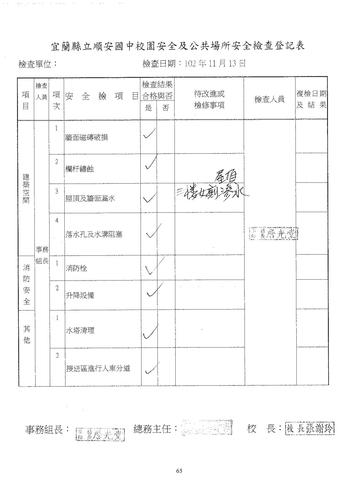 宜蘭縣立順安國中校園安全及公共場所安全檢查登記表
檢查單位： 檢查日期：102年11月13日
項目 檢查人員 項次 安全檢項目 檢查結果合格與否 是 否 待改進或檢修事項 檢查人員 複檢日期及結果
建築空間 事務組長
1 牆面磁磚破損 ✓
2 欄杆鏽蝕 ✓
3 屋頂及牆面漏水 ✓ 屋頂 三樓女廁滲水
4 落水孔及水溝阻塞 ✓
消防安全
1 消防栓 ✓
2 升降設備 ✓
其他
1 水塔清理 ✓
2 接送區進行人車分道 ✓
事務組長： 總務主任： 校長：校長張謝玲
65